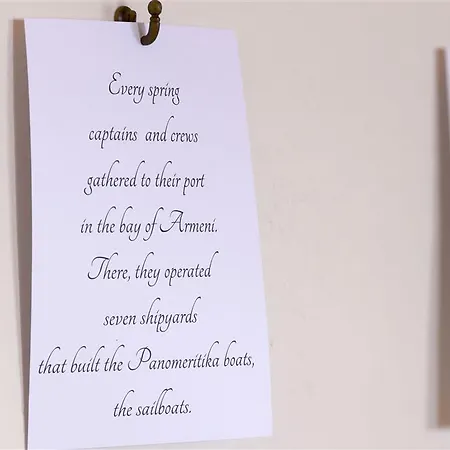 Every spring
captains and crews
gathered to their port
in the bay of Armeni.
There, they operated
seven shipyards
that built the Panomeritika boats,
the sailboats.